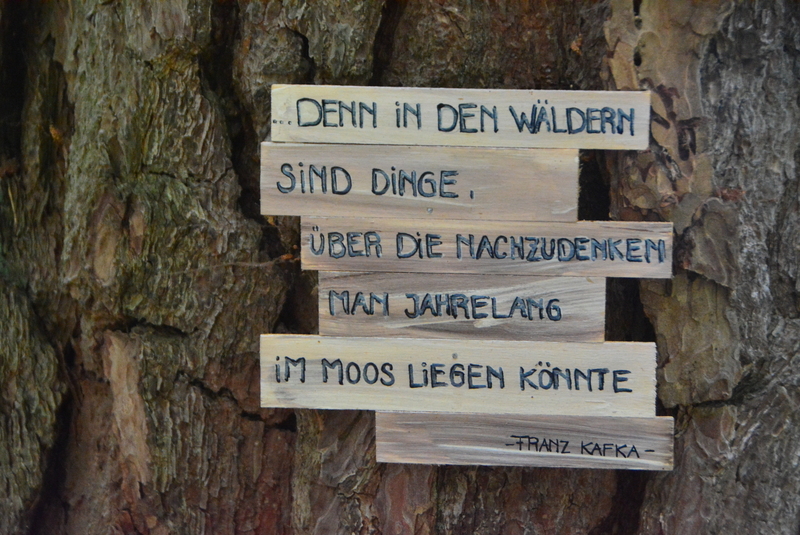 ...DENN iN DEN WÄLDERN
SiND DiNGE,
ÜBER DiE NACHZUDENKEN
MAN JAHRELANG
iM MOOS LiEGEN KÖNNTE
-FRANZ KAFKA-